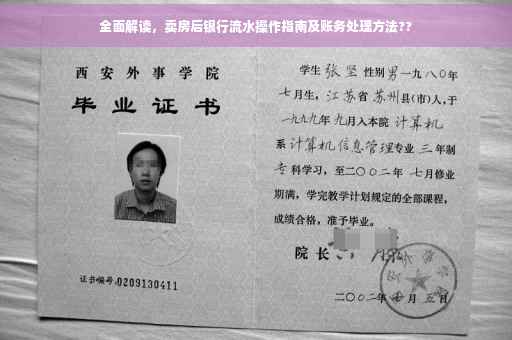 全面解读，卖房后银行流水操作指南及账务处理方法??
西安外事学院
毕业证书
证书编号:0209130411
学生 张坚 性别男一九八〇年
七月生，江苏省苏州县(市)人，于
一九九九年九月入本院 计算机
系计算机信息管理专业三年制
专科学习，至二〇〇二年七月修业
期满，学完教学计划规定的全部课程，
成绩合格，准予毕业。
院长
二〇〇二年 月五日